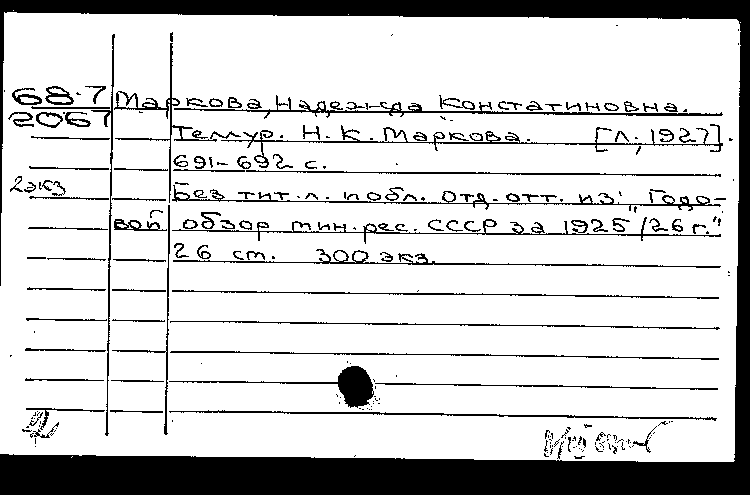 68-7 Маркова, Надежда Констатиновна.
2067
Теллур. Н. К. Маркова. [Л., 1927].
691-692 с.
2экз Без тит. л. и обл. Отд. отт. из: „Годо-
вой обзор мин. рес. СССР за 1925/26 г."
26 см. 300 экз.